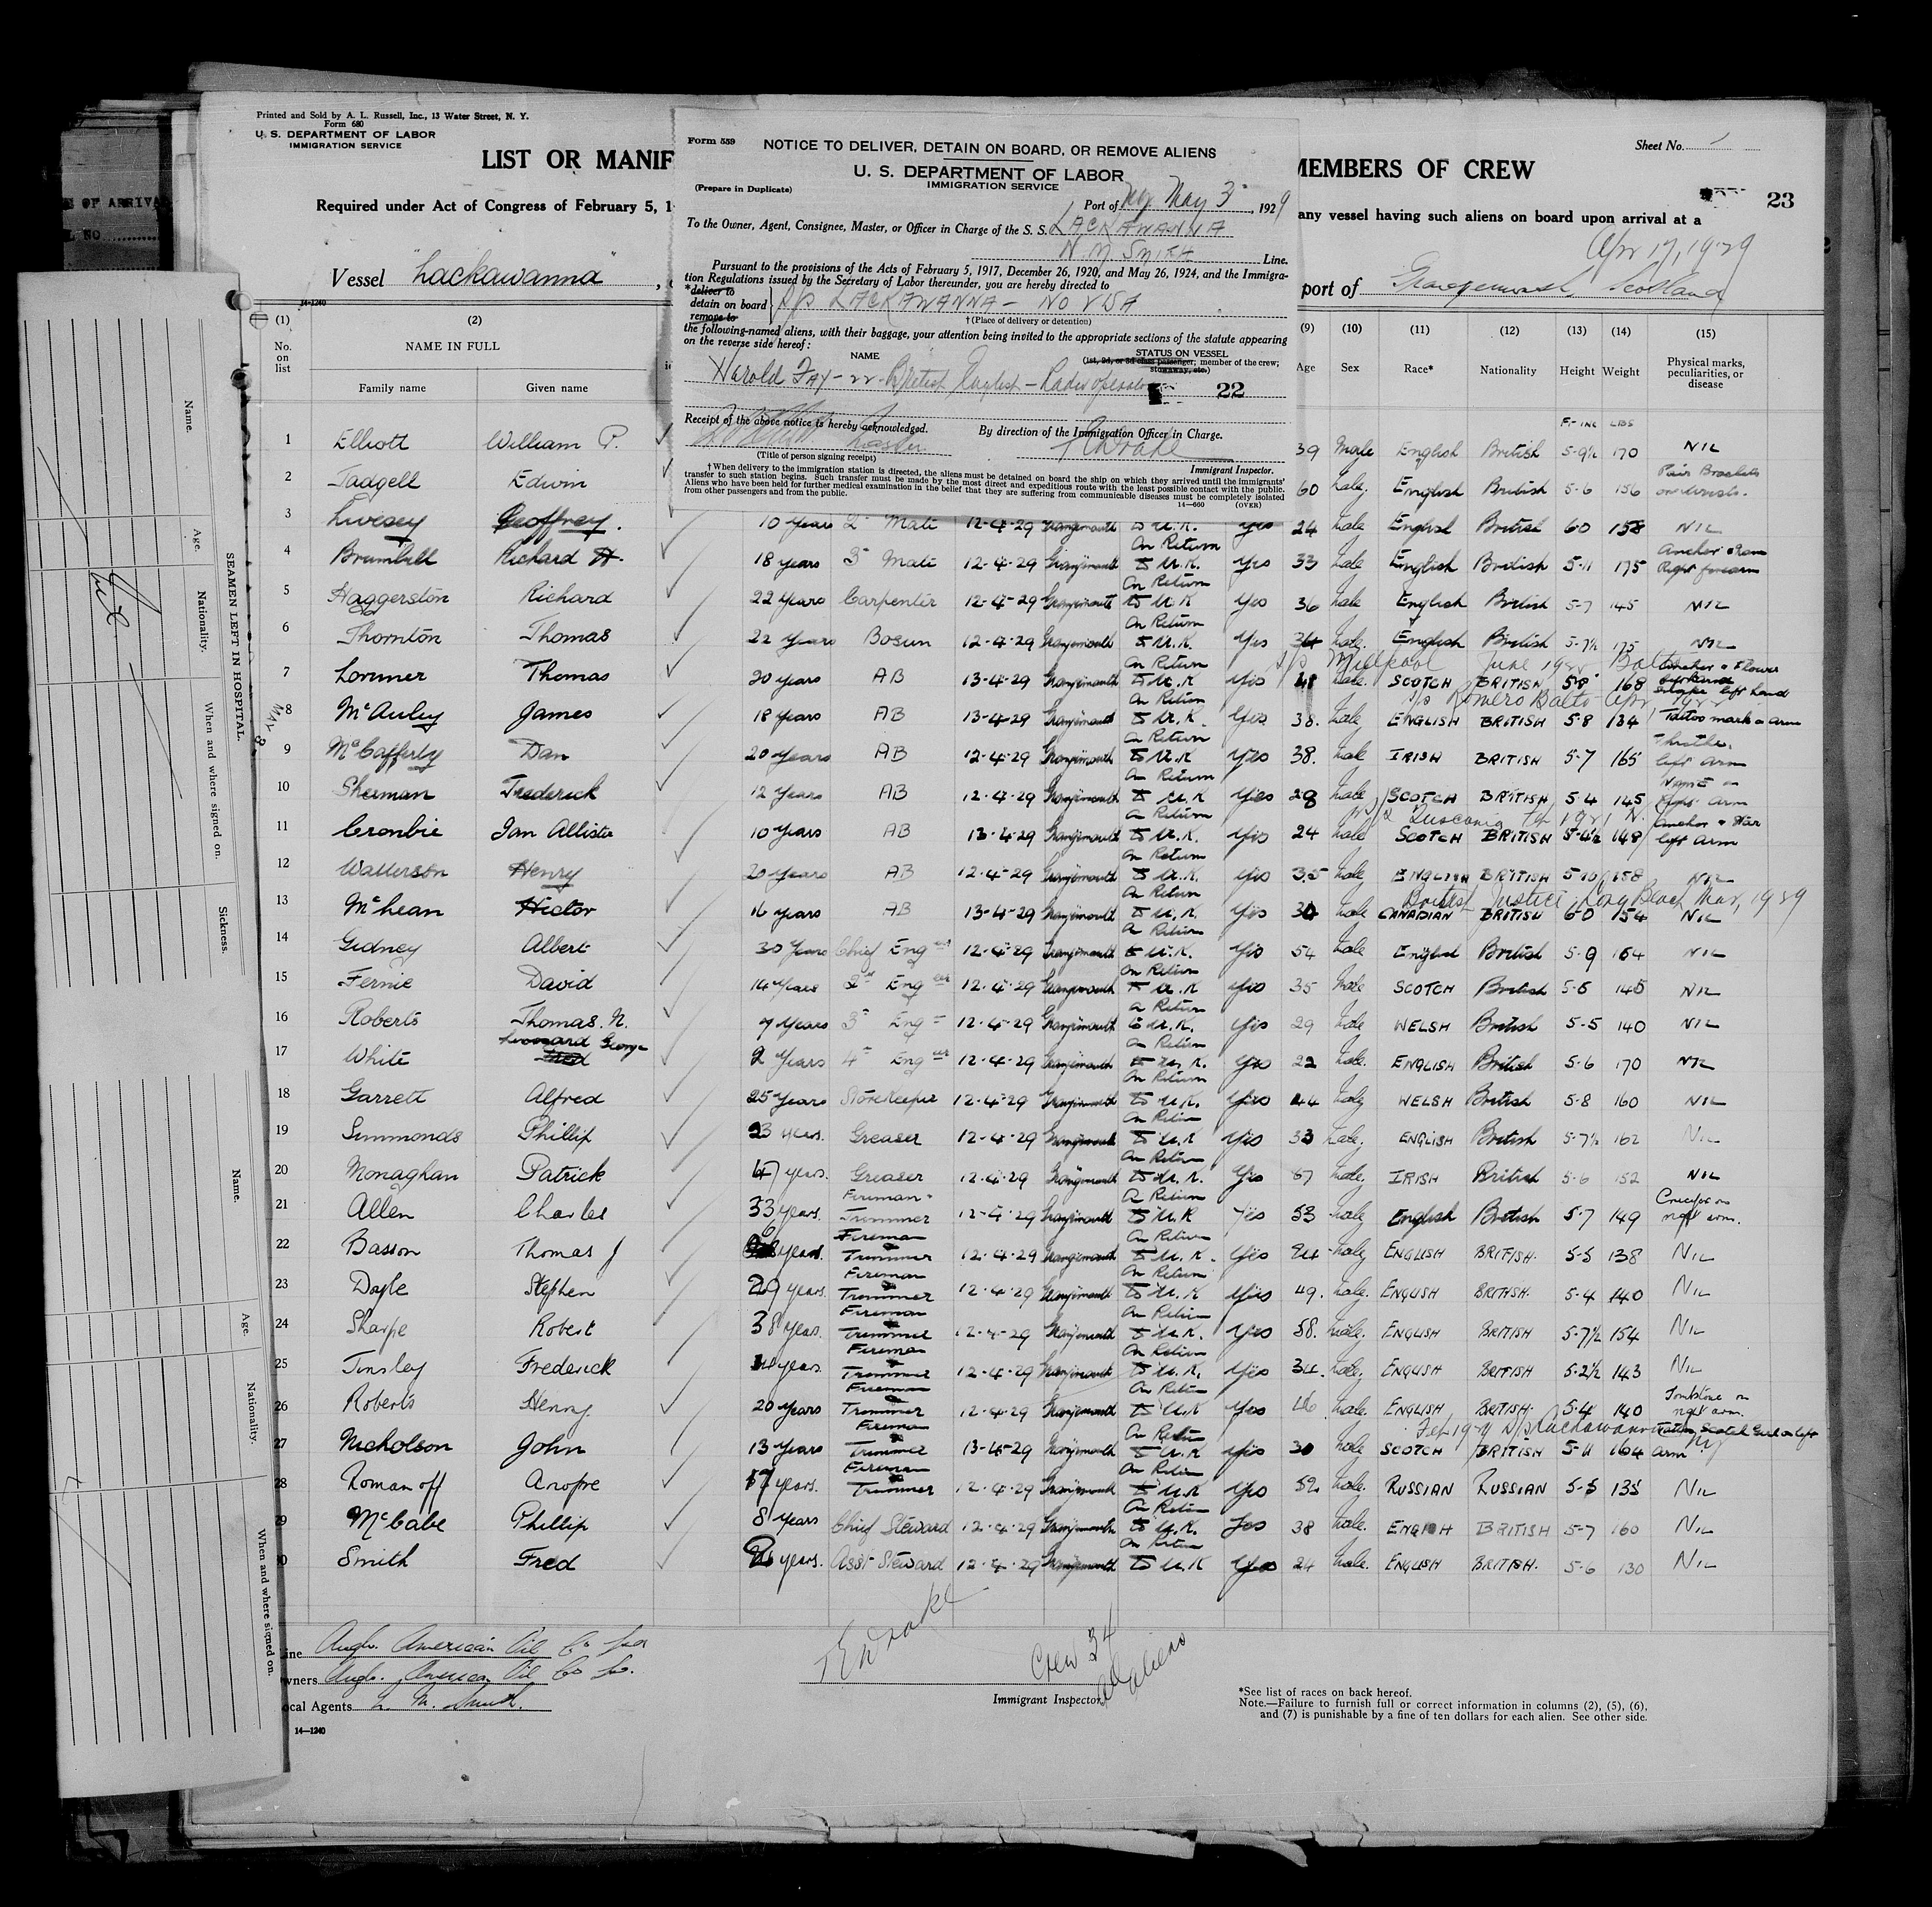 Printed and Sold by A. L. Russell, Inc., 13 Water Street, N. Y.
Form 680
U. S. DEPARTMENT OF LABOR
IMMIGRATION SERVICE
LIST OR MANIF
Required under Act of Congress of February 5, 1
Vessel "Lackawanna"
Form 559
NOTICE TO DELIVER, DETAIN ON BOARD, OR REMOVE ALIENS
U. S. DEPARTMENT OF LABOR
IMMIGRATION SERVICE
(Prepare in Duplicate)
Port of N.Y. May 3, 1929
To the Owner, Agent, Consignee, Master, or Officer in Charge of the S. S. LACKAWANNA
N. M. SMITH Line.
Pursuant to the provisions of the Acts of February 5, 1917, December 26, 1920, and May 26, 1924, and the Immigra-
tion Regulations issued by the Secretary of Labor thereunder, you are hereby directed to
*deliver to
detain on board S/S LACKAWANNA - NO VISA
remove to
† (Place of delivery or detention)
the following-named aliens, with their baggage, your attention being invited to the appropriate sections of the statute appearing
on the reverse side hereof:
NAME
STATUS ON VESSEL
(1st, 2d, or 3d class passenger; member of the crew;
stowaway, etc.)
Harold Fay - 22 - British English - Radio operator
22
Receipt of the above notice is hereby acknowledged.
By direction of the Immigration Officer in Charge.
Master
(Title of person signing receipt)
Immigrant Inspector.
† When delivery to the immigration station is directed, the aliens must be detained on board the ship on which they arrived until the immigrants'
transfer to such station begins. Such transfer must be made by the most direct and expeditious route with the least possible contact with the public.
Aliens who have been held for further medical examination in the belief that they are suffering from communicable diseases must be completely isolated
from other passengers and from the public.
14—660 (OVER)
Sheet No. 1
MEMBERS OF CREW
23
any vessel having such aliens on board upon arrival at a
Apr 17, 1929
port of Grangemouth, Scotland
14-1240
(1) (2) (9) (10) (11) (12) (13) (14) (15)
No. on list
NAME IN FULL
Family name Given name
Age Sex Race* Nationality Height Weight Physical marks, peculiarities, or disease
FT INS LBS
1 Elliott William P. 39 Male English British 5-9½ 170 NIL
2 Tadgell Edwin 60 Male English British 5-6 156
3 Livesey Geoffrey. 10 Years 2nd Mate 12-4-29 Grangemouth to U.K. Yes 24 Male English British 6-0 158 NIL
4 Brumbill Richard H. 18 years 3rd Mate 12-4-29 Grangemouth On Return to U.K. Yes 33 Male English British 5-11 175
5 Haggerston Richard 22 Years Carpenter 12-4-29 Grangemouth On Return to U.K. Yes 36 Male English British 5-7 145 NIL
6 Thornton Thomas 22 Years Bosun 12-4-29 Grangemouth On Return to U.K. Yes 34 Male English British 5-7½ 175 NIL
S/S Millpool June 1928 Balto
7 Lorimer Thomas 20 years AB 13-4-29 Grangemouth On Return to U.K. Yes 48 Male SCOTCH BRITISH 5-8 168 Anchor & Flower left hand
S/S Romero Balto Apr 1928
8 McAuley James 18 Years AB 13-4-29 Grangemouth On Return to U.K. Yes 38 Male ENGLISH BRITISH 5-8 134 Tattoo mark on arm
9 McCafferty Dan 20 years AB 12-4-29 Grangemouth On Return to U.K. Yes 38 Male IRISH BRITISH 5-7 165 Thistle. left arm
10 Sherman Frederick 12 Years AB 12-4-29 Grangemouth On Return to U.K. Yes 28 Male SCOTCH BRITISH 5-4 145 Name on right arm
11 Crombie Ian Allister 10 Years AB 13-4-29 Grangemouth On Return to U.K. Yes 24 Male SCOTCH BRITISH 5-4½ 148 Anchor & Star left arm
12 Watterson Henry 20 years AB 12-4-29 Grangemouth On Return to U.K. Yes 35 Male ENGLISH BRITISH 5-10 158 NIL
British Justice, Long Beach Mar, 1929
13 McLean Hector 16 years AB 13-4-29 Grangemouth On Return to U.K. Yes 30 Male CANADIAN BRITISH 6-0 154 NIL
14 Gidney Albert 30 Years Chief Engeer 12-4-29 Grangemouth On Return to U.K. Yes 54 Male English British 5-9 164 NIL
15 Fernie David 14 Years 2nd Engeer 12-4-29 Grangemouth On Return to U.K. Yes 35 Male SCOTCH British 5-8 145 NIL
16 Roberts Thomas. N. 7 Years 3rd Eng 12-4-29 Grangemouth On Return to U.K. Yes 29 Male WELSH British 5-5 140 NIL
17 White Leonard George Fred 2 Years 4th Engeer 12-4-29 Grangemouth On Return to U.K. Yes 22 Male ENGLISH British 5-6 170 NIL
18 Garrett Alfred 25 Years Storekeeper 12-4-29 Grangemouth On Return to U.K. Yes 44 Male WELSH British 5-8 160 NIL
19 Simmonds Phillip 23 years. Greaser 12-4-29 Grangemouth On Return to U.K. Yes 33 Male ENGLISH British 5-7½ 162 NIL
20 Monaghan Patrick 47 years. Greaser 12-4-29 Grangemouth On Return to U.K. Yes 67 Male IRISH British 5-6 152 NIL
21 Allen Charles 33 years. Fireman Trimmer 12-4-29 Grangemouth On Return to U.K. Yes 53 Male English British 5-7 149 Crucifix on right arm.
22 Basson Thomas J 6 years. Fireman & Trimmer 12-4-29 Grangemouth On Return to U.K. Yes 24 Male ENGLISH BRITISH. 5-5 138 NIL
23 Doyle Stephen 29 years. Fireman & Trimmer 12-4-29 Grangemouth On Return to U.K. Yes 49. Male. ENGLISH BRITISH. 5-4 140 NIL
24 Sharpe Robert 38 years. Fireman & Trimmer 12-4-29 Grangemouth On Return to U.K. Yes 58. Male. ENGLISH BRITISH 5-7½ 154 NIL
25 Tinsley Frederick 14 years. Fireman & Trimmer 12-4-29 Grangemouth On Return to U.K. Yes 34. Male. ENGLISH BRITISH 5-2½ 143 NIL
26 Roberts Henry. 20 Years Fireman & Trimmer 12-4-29 Grangemouth On Return to U.K. Yes 46 Male. ENGLISH BRITISH. 5-4 140 Tombstone on right arm.
Feb 1929 S/S Lackawanna NY
27 Nicholson John 13 Years Fireman & Trimmer 13-4-29 Grangemouth On Return to U.K. Yes 30 Male SCOTCH BRITISH 5-11 164 Tattoo, Scotch Girl on left arm
28 Romanoff Anopre 17 years. Fireman & Trimmer 12-4-29 Grangemouth On Return to U.K. Yes 52 Male. RUSSIAN RUSSIAN 5-5 135 NIL
29 McCabe Phillip 8 Years Chief Steward 12-4-29 Grangemouth On Return to U.K. Yes 38 Male. ENGLISH BRITISH 5-7 160 NIL
30 Smith Fred years. Asst Steward 12-4-29 Grangemouth On Return to U.K. Yes 24 Male. ENGLISH BRITISH. 5-6 130 NIL
ine Anglo. American Oil Co Ltd
wners Anglo. American Oil Co Ld.
ocal Agents N. M. Smith.
14—1240
Crew 34
all aliens
Immigrant Inspector
*See list of races on back hereof.
Note.—Failure to furnish full or correct information in columns (2), (5), (6),
and (7) is punishable by a fine of ten dollars for each alien. See other side.
SEAMEN LEFT IN HOSPITAL.
Name. Age. Nationality. When and where signed on. Sickness.
MAY 3
Name. Age. Nationality. When and where signed on.